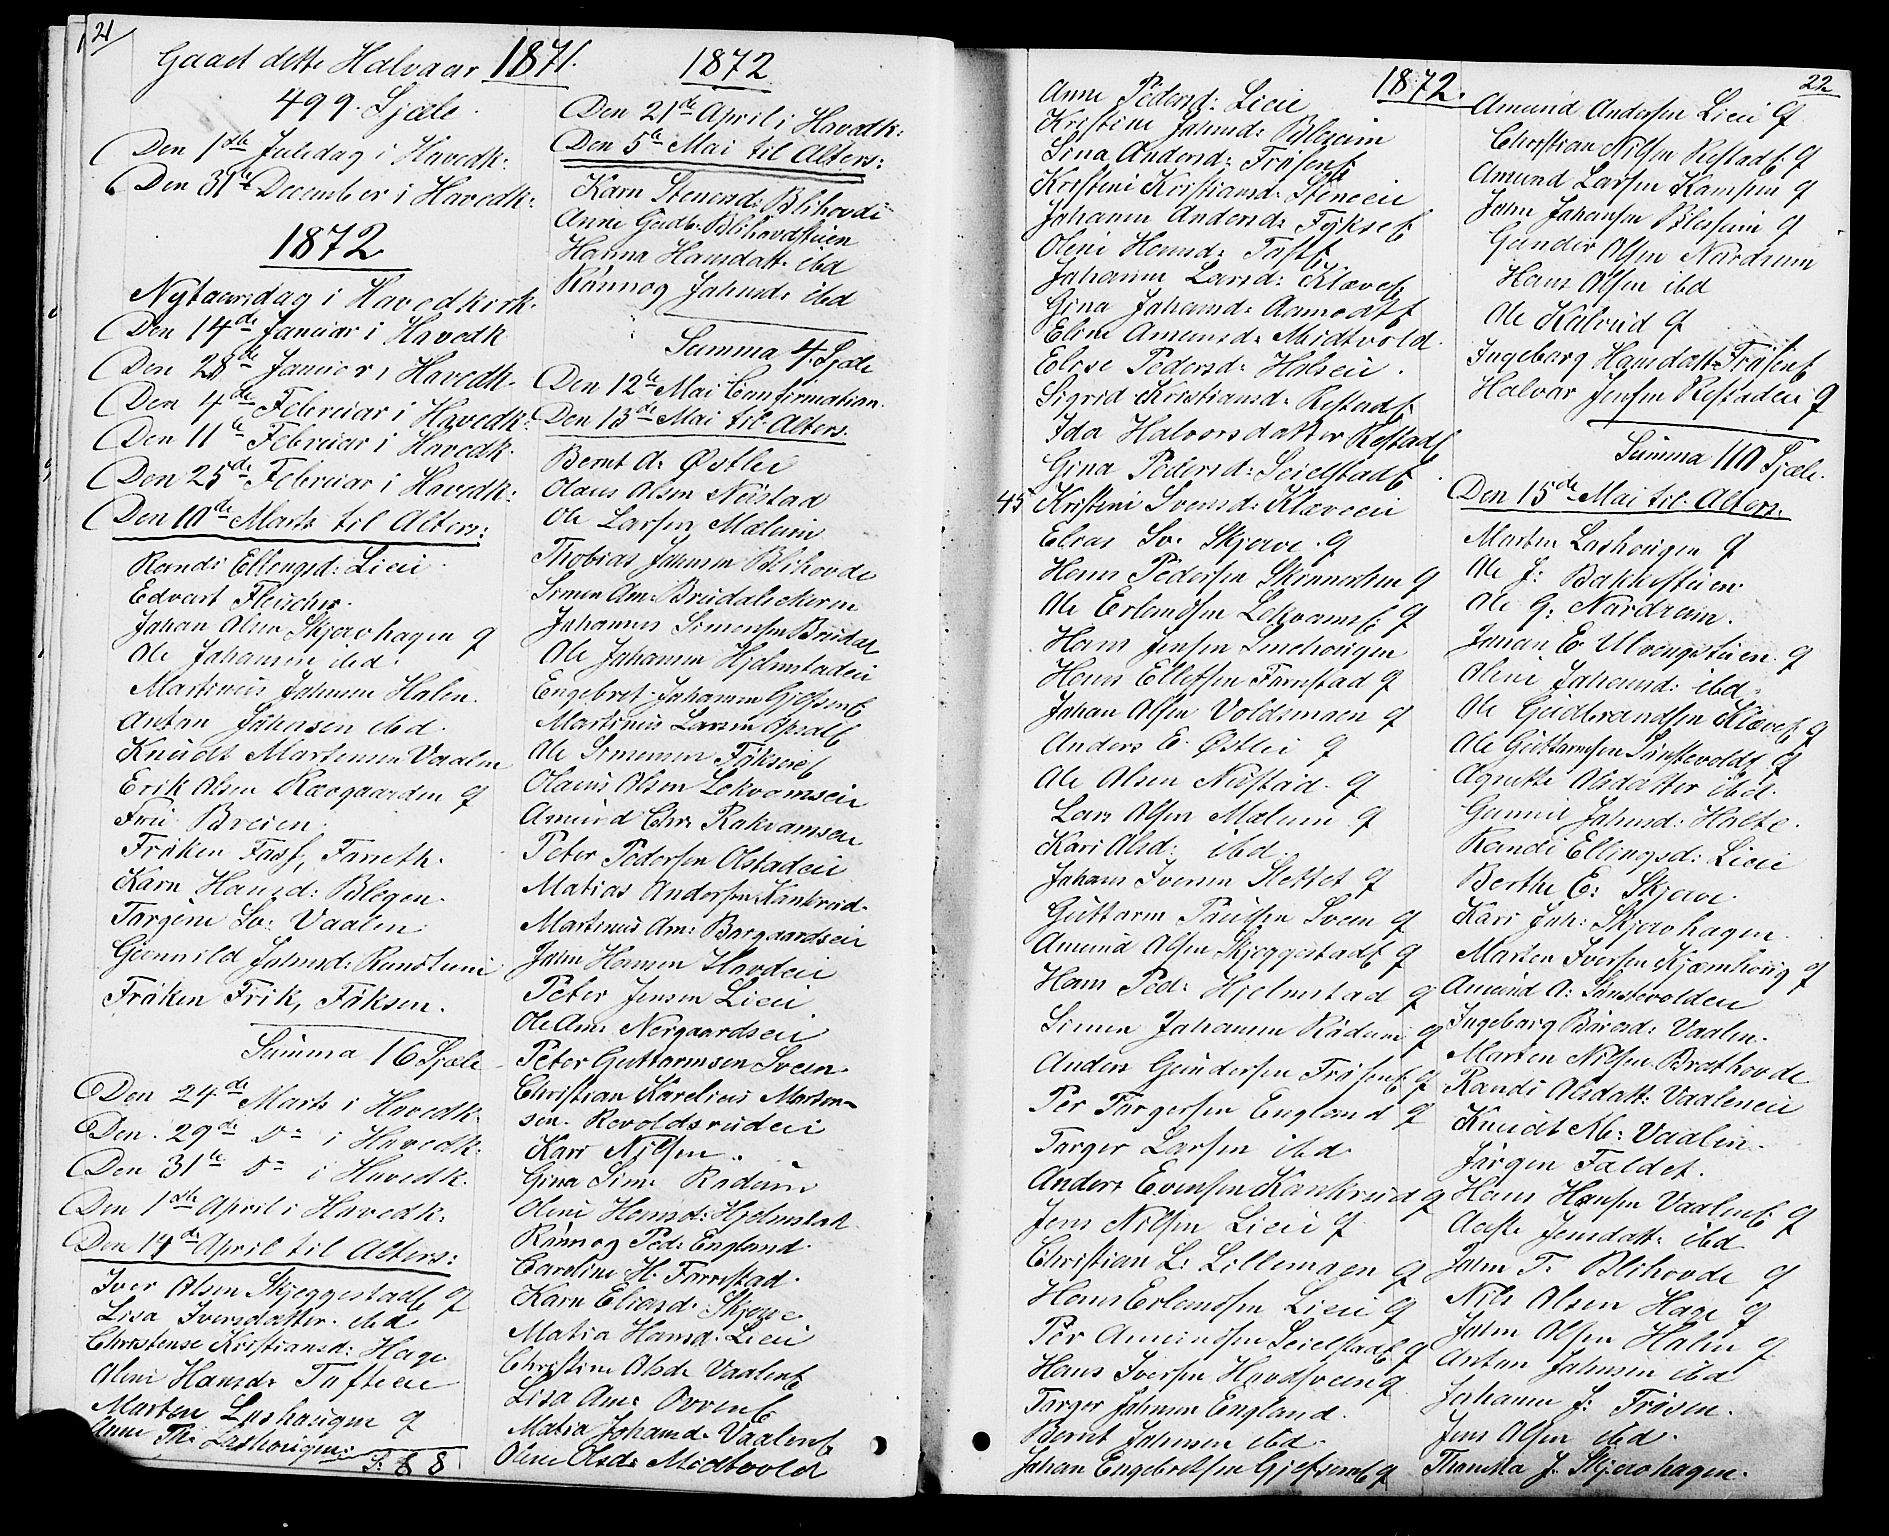 21
Gaaet dette Halvaar 1871.
499. Sjæle.
Den 1ste Juledag i Havedk:
Den 31te December i Havedk:
1872
Nytaarsdag i Havedkirk.
Den 14de Januar i Havedk
Den 28de Januar i Havedk.
Den 4de Februar i Havedk:
Den 11te Februar i Havedk.
Den 25de Februar i Havedk:
Den 10de Marts til Alters:
Randi Ellengsd: Lien
Edvart Fleischer.
Johan Olsen Skjævhagen g
Ole Johansen ibd.
Martinius Johnsen Halen.
Anton Johnsen ibd.
Knudt Martensen Vaalen
Erik Olsen Rævgaarden g
Fru Breien.
Frøken Fass, Fanneth.
Karn Hansd: Blegen.
Torgine Sv: Vaalen
Gunnild Johnsd: Rundtuni
Frøken Frik, Føksen.
Summa 16 Sjæle
Den 24de Marts i Havedk.
Den. 29de D= i Havedk.
Den 31te D= i Havedk.
Den 1ste April i Havedk.
Den 14de April til Alters:
Iver Olsen Skjeggestade g
Lisa Iversdatter ibd
Christense Kristiansd: Hage
Oline Hansd: Tofteie
Marten Lashougen g
Anne Th: Lashougen
S: 8 8
1872
Den 21de April i Havedk:
Den 5te Mai til Alters:
Karn Stenersd: Blihovde
Anne Gudb: Blihovdstuen
Hanna Hansdatt. ibd
Rønnog Johnsd: ibd
Summa 4 Sjæle
Den 12te Mai Confirmation.
Den 13de Mai til Alters.
Bernt A. Østlie
Olaus Olsen Nustad
Ole Larsen Mælum
Thobias Johnsen Blihovde
Simen Am: Brudalsekeren
Johannes Simensen Brudal
Ole Johansen Hjelmstadeie
Engebret Johansen Gjefsene
Martinus Larsen Opsale
Ole Simensen Føksene
Olaus Olsen Lekvamseie
Amund Chr. Rakvamseie
Peter Pedersen Olstadeie
Matias Andersen Kankrud.
Martinus Am: Borgaardseie
John Hansen Havdeie
Peter Jensen Lieie
Ole Am: Nørgaardseie
Peter Guttormsen Sveen
Christian Karelius Marten-
sen. Revoldsrudeie
Kari Nilsen.
Gina Sim: Rødum
Oline Hansd: Hjelmstat
Rønnog Ped: England.
Caroline H: Fornstad.
Karn Eliasd: Skjæve
Matia Hansd: Lien
Christine Olsd: Vaalene
Lisa Am: Ovrene
Matia Johansd: Vaalene
Oline Olsd: Midtvold
1872.
22
Anne Pedersd: Lieie
Kristine Johnsd: Bleseim
Lina Andersd: Frøsene
Kristine Kristiansd: Steneeie
Johanne Andersd: Føkse
Oline Hansd: Tofte
Johanne Larsd: Kleve
Gina Johansd: Aamodt
Eline Amunsd: Midtvold
Elise Pedersd: Holseie.
Sigrid Kristiansd: Rostade
Ida Halvorsdatter Rostade
Gina Pedersd: Seielstade
45 Kristine Svensd: Kleveeie
Elias Sv. Skjæve. g
Hans Pedersen Skinnerlien g
Ole Erlandsen Lekvamse g
Hans Jensen Smehougen
Hans Ellefsen Fornstad g
Johan Olsen Voldsmoen g
Anders E. Østlie g
Ole Olsen Nustad. g
Lars Olsen Mælum g
Kari Olsd: ibd.
Johans Iversen Slettet g
Guttorm Paulsen Sveen g
Amund Olsen Skjeggestade g
Hans Ped: Hjelmstad g
Simen Johansen Rødum g
Anders Gundersen Frøsene g
Per Torgersen England g
Torger Larsen ibd
Anders Evensen Kankrud g
Jens Nilsen Lieie g
Christian L. Lillemoen g
Hans Erlandsen Lieie g
Per Amundsen Seielstade g
Hans Iversen Hovdsveen g
Torger Johnsen England.
Bernt Johnsen ibd.
Johan Engebretsen Gjefseme g
Amund Andersen Lieie g
Christian Nilsen Rostade g
Amund Larsen Kampen g
John Johansen Blesseim g
Gunder Olsen Nordrum
Hans Olsen ibd
Ole Kalrud g
Ingeborg Hansdatt. Frøsene
Halvor Jensen Rostadeie g
Summa 110 Sjæle.
Den 15de Mai til Alters.
Marten Lashougen g
Ole J: Bakkestuen
Ole G: Nordrum.
Johan E. Ulvengstuen g
Oline Johansd: ibd.
Ole Gudbrandsen Kleve g
Ole Guttormsen Sønstevolde g
Agnette Olsdatter ibd.
Gunnil Johnsd: Holte.
Randi Ellingsd: Lieie
Berthe E: Skjæve.
Kari Joh: Skjævhagen.
Marten Iversen Kjæmhoug g
Amund A: Sønstevolden
Ingeborg Baresd: Vaalen.
Marten Nilsen Brathovde
Randi Olsdatt: Vaaleneie
Knudt M: Vaalen.
Jørgen Faldet.
Hans Hansen Vaalene g
Aaste Jensdatt. ibd
John T. Blihovde g
Nils Olsen Hage g
John Olsen Halen g
Anton Johnsen ibd
Johanne J: Frøsen.
Jens Olsen ibd.
Thomena J. Skjævhagen.